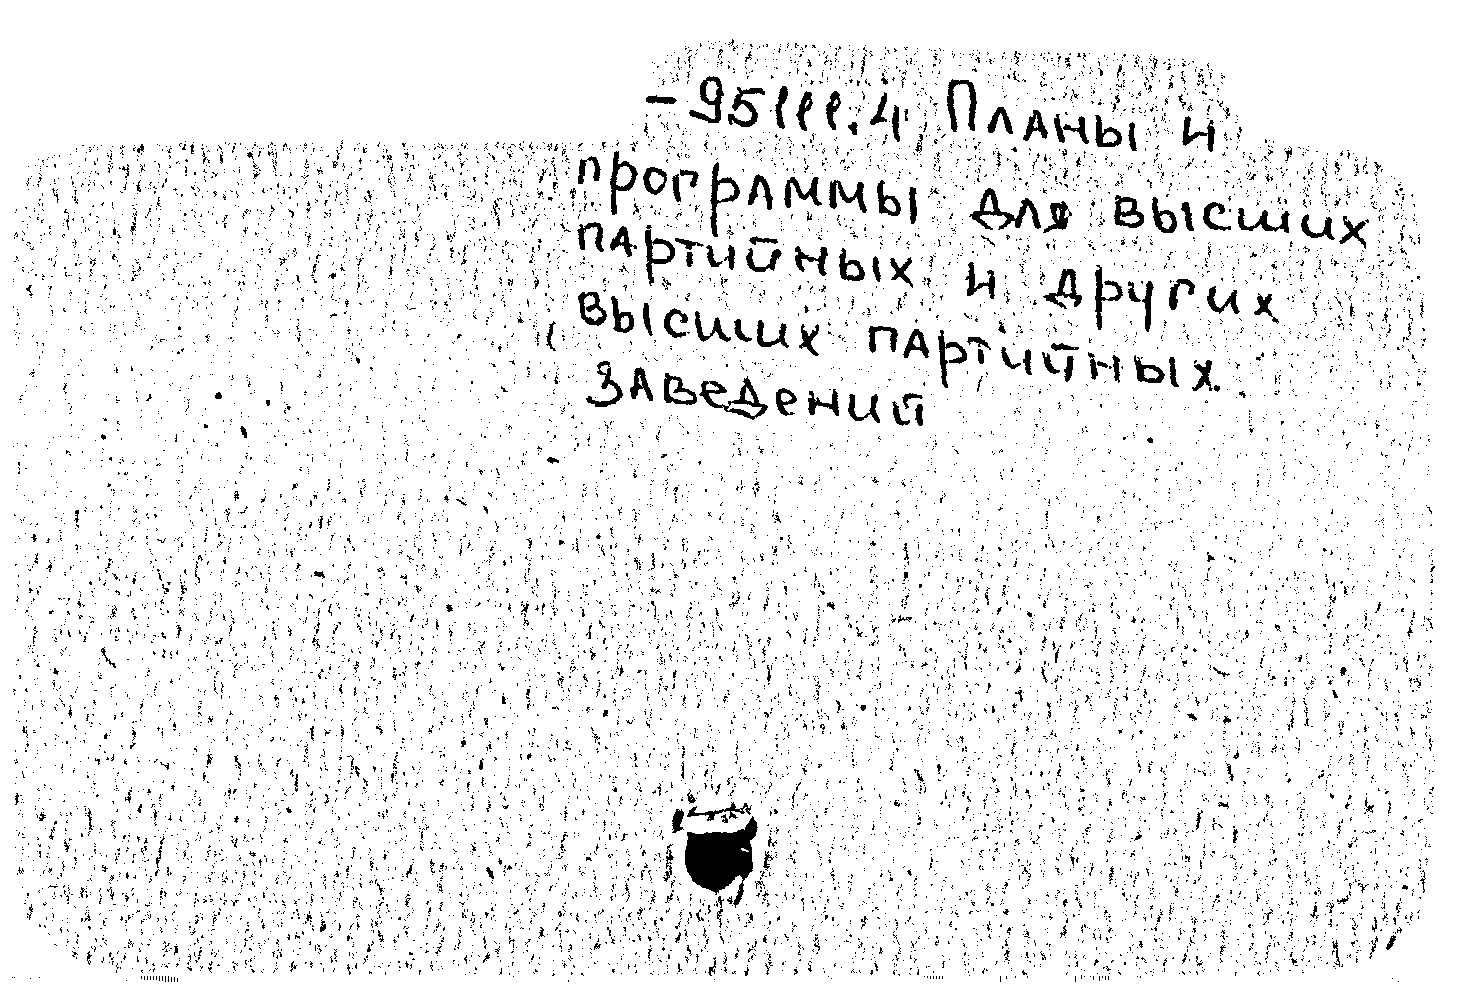 -95111.4 Планы и
программы для высших
партийных и других
высших партийных
заведений